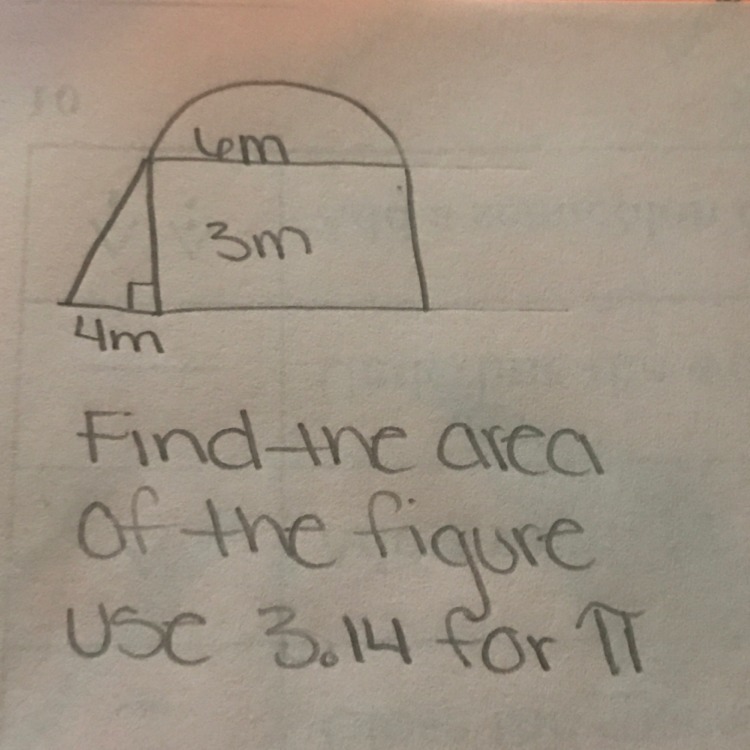 6m
3m
4m
Find the area
of the figure
use 3.14 for π